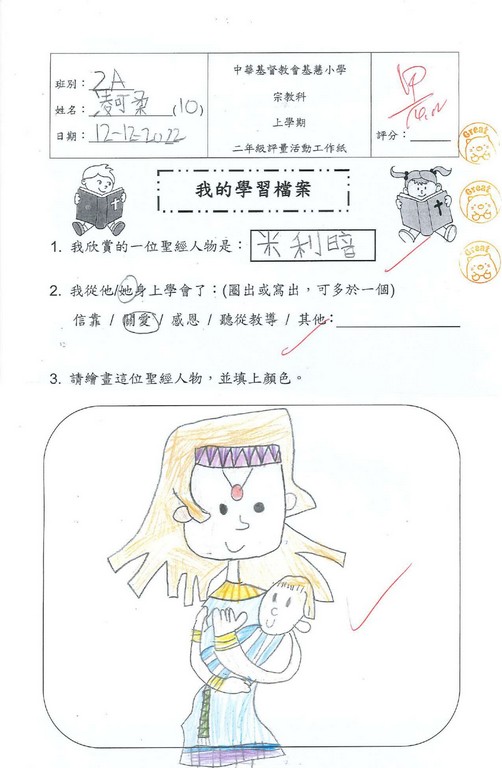 中華基督教會基慧小學
宗教科
上學期
二年級評量活動工作紙
班別：2A
姓名：凌可柔(10)
日期：12-12-2022
甲
評分：
Great
Great
Great
我的學習檔案
1. 我欣賞的一位聖經人物是：米利暗
2. 我從他/她身上學會了：(圈出或寫出，可多於一個)
信靠 / 關愛 / 感恩 / 聽從教導 / 其他：
3. 請繪畫這位聖經人物，並填上顏色。